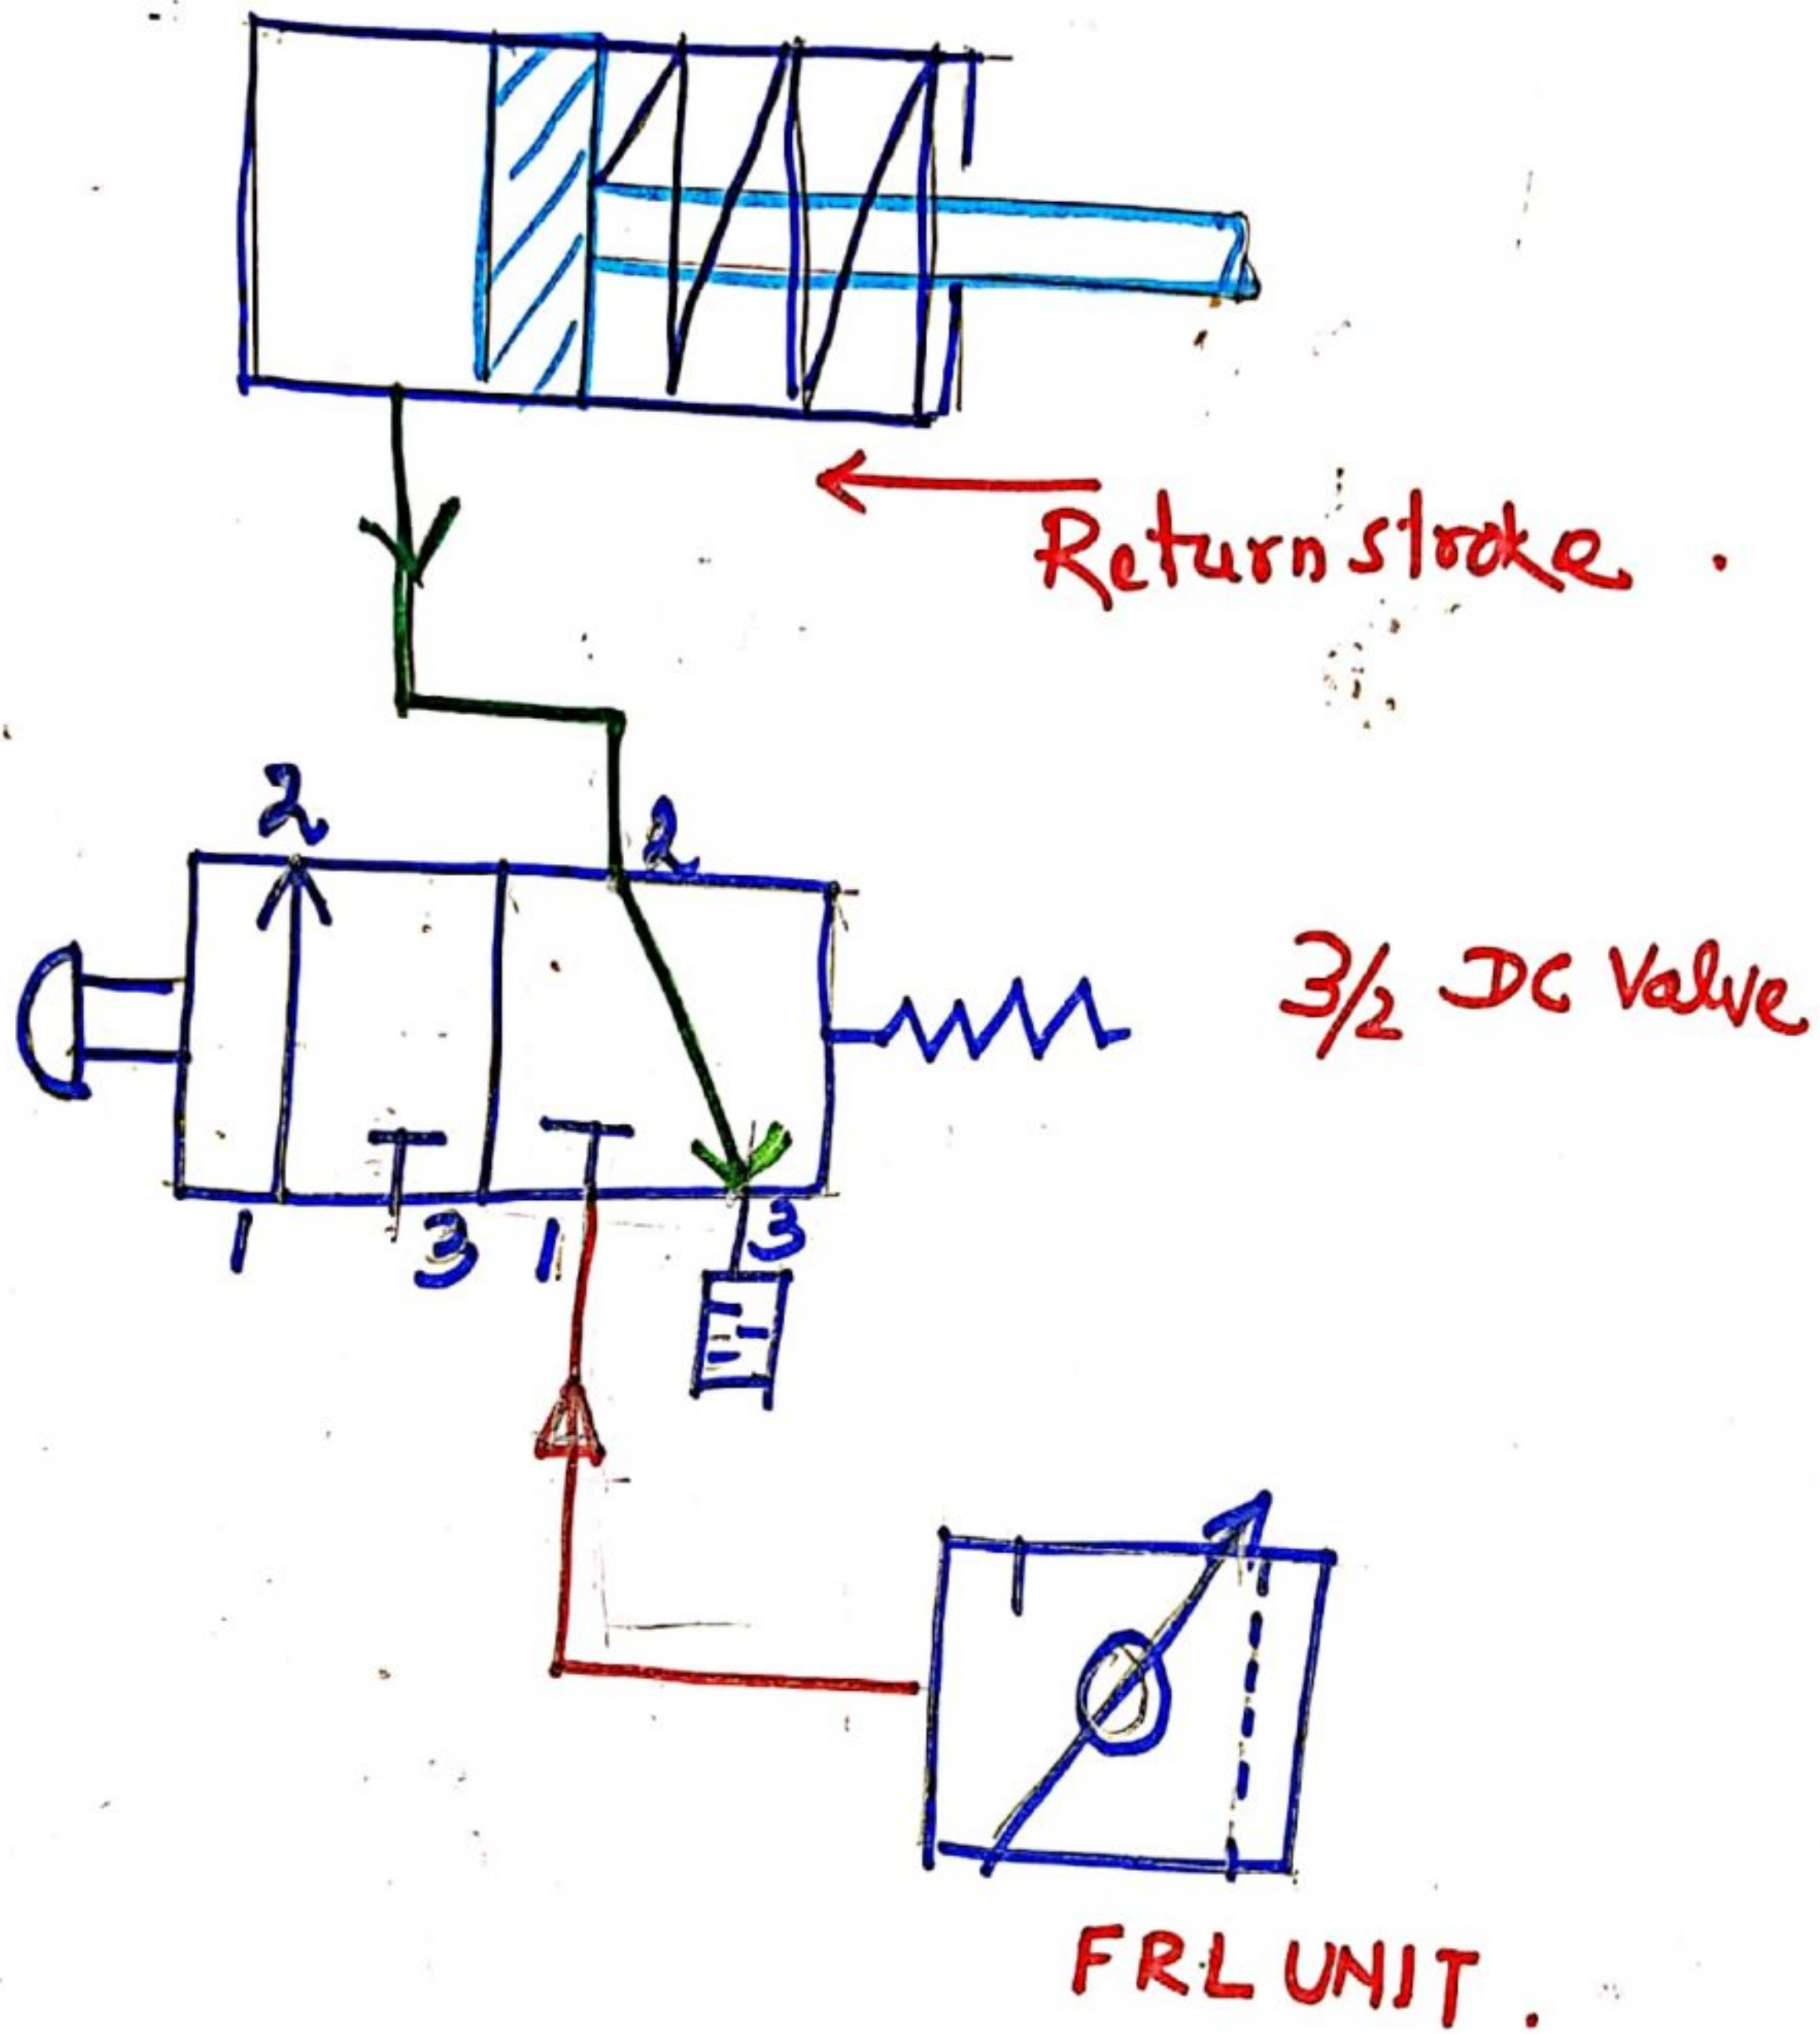 Return stroke.
2
2
3/2 DC Valve
1 3 1 3
FRL UNIT.